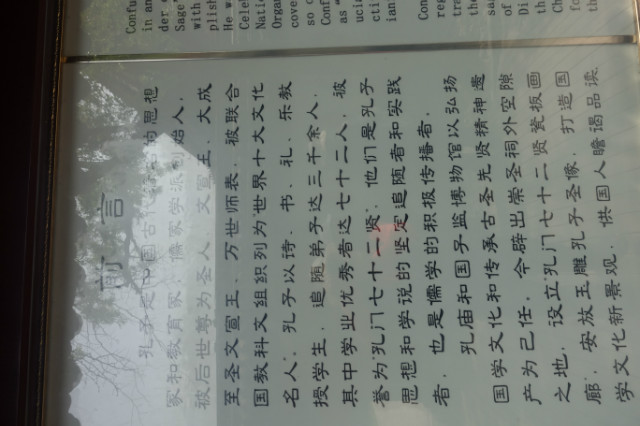 前言
孔子是中国古代著名的思想
家和教育家，儒家学派创始人，
被后世尊为圣人、文宣王、大成
至圣文宣王、万世师表，被联合
国教科文组织列为"世界十大文化
名人"。孔子以诗、书、礼、乐教
授学生，追随弟子达三千余人，
其中学业优秀者达七十二人，被
誉为"孔门七十二贤"，他们是孔子
思想和学说的坚定追随者和实践
者，也是儒学的积极传播者。
孔庙和国子监博物馆以弘扬
国学文化和传承古圣先贤精神遗
产为己任，今辟出崇圣祠外空隙
之地，设立"孔门七十二贤瓷板画
廊"，安放玉雕孔子圣像，打造国
学文化新景观，供国人瞻谒品读
Confu
in an
der
Sage"
with
plish
He w
Celeb
Natio
Organ
cover
so o
Conf
as "
ucia
ctic
iani
Con
reg
tra
the
sag
of
Di
Ch
fo
the